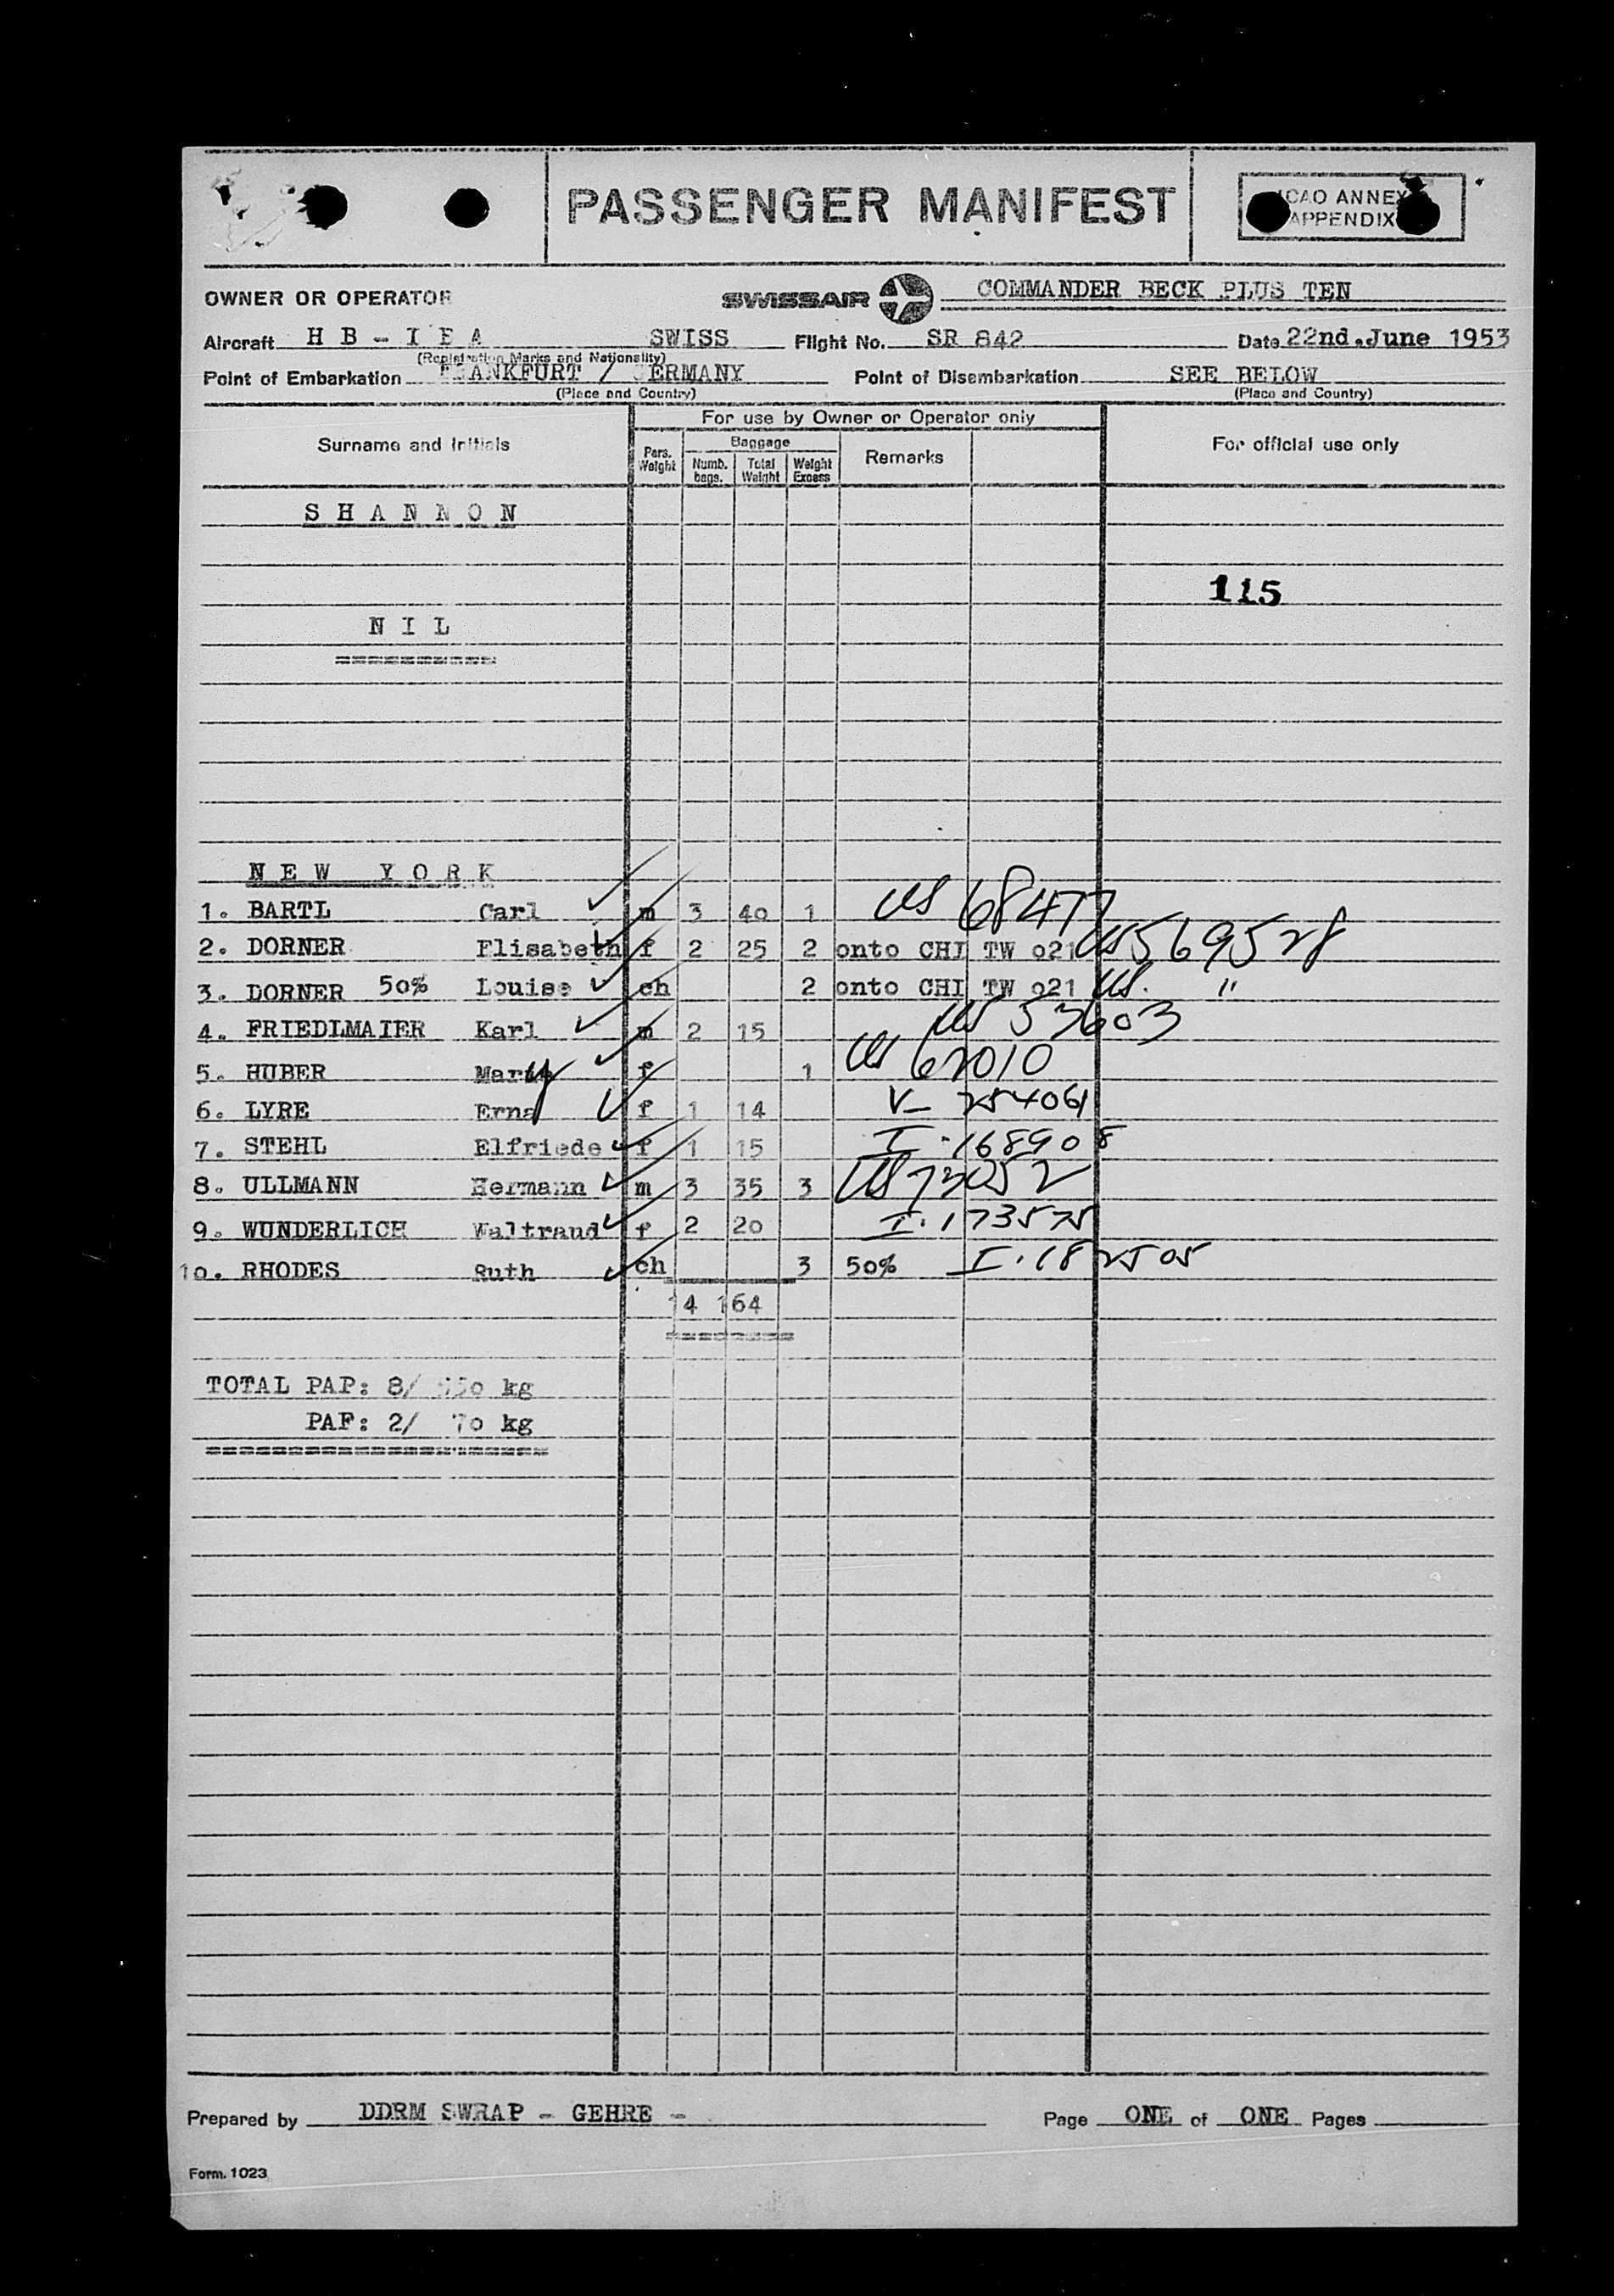 PASSENGER MANIFEST
ICAO ANNEX
APPENDIX
OWNER OR OPERATOR SWISSAIR COMMANDER BECK PLUS TEN
Aircraft H B - I E A SWISS Flight No. SR 842 Date 22nd.June 1953
(Registration Marks and Nationality)
Point of Embarkation FRANKFURT / GERMANY Point of Disembarkation SEE BELOW
(Place and Country) (Place and Country)
For use by Owner or Operator only
Surname and Initials Pers. Weight Baggage Numb. bags. Total Weight Weight Excess Remarks For official use only
S H A N N O N
115
N I L
==========
N E W Y O R K
1. BARTL Carl m 3 40 1 US 68477
2. DORNER Elisabeth f 2 25 2 onto CHI TW o21 US 569528
3. DORNER 50% Louise ch 2 onto CHI TW o21 US. "
4. FRIEDLMAIER Karl m 2 15 US 53603
5. HUBER Mary f 1 US 62010
6. LYRE Erna f 1 14 V- 254061
7. STEHL Elfriede f 1 15 I-168908
8. ULLMANN Hermann m 3 35 3 US 73052
9. WUNDERLICH Waltraud f 2 20 I.173575
1o. RHODES Ruth ch 3 50% I.182505
14 164
========
TOTAL PAP: 8/ 55o kg
PAF: 2/ 7o kg
=====================
Prepared by DDRM SWRAP - GEHRE - Page ONE of ONE Pages
Form. 1023